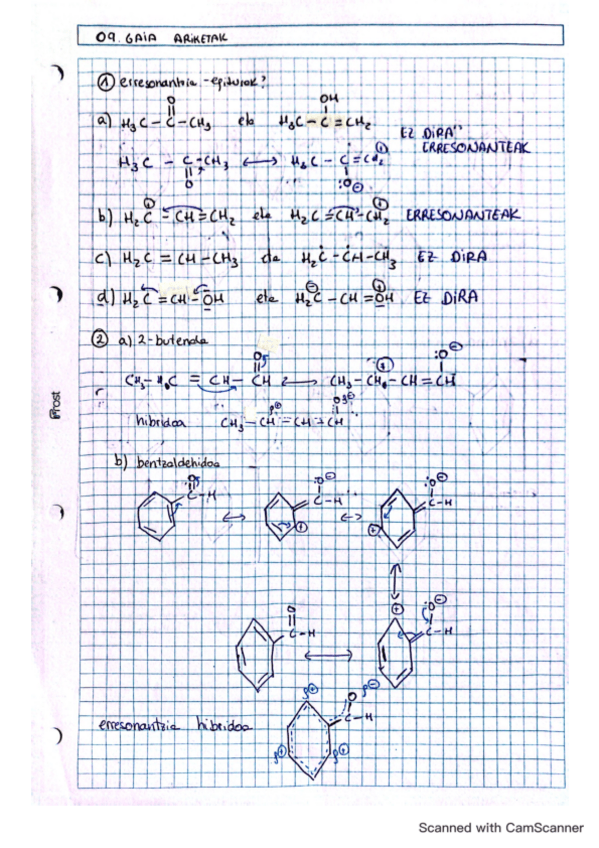 09. GAIA ARIKETAK
① erresonantzia-egiturak?
a) H₃C – C – CH₃ eta H₃C – C = CH₂
O OH
EZ DIRA
ERRESONANTEAK
H₃C – C – CH₃ ⟷ H₃C – C = CH₂
O :O⊖
b) H₂C – CH = CH₂ eta H₂C = CH – CH₂ ERRESONANTEAK
c) H₂C = CH – CH₃ eta H₂C – CH – CH₃ EZ DIRA
d) H₂C = CH – OH eta H₂C – CH = OH EZ DIRA
② a) 2-butenala
O :O⊖
= CH – CH ⟷ CH = CH
hibridoa CH₃ – CH = CH – CH
b) bentzaldehidoa
O :O⊖ :O⊖
C – H ⟷ C – H ⟷ C – H
⊕ ⊕
O ⊕ :O⊖
C – H ⟷ C – H
O
C – H
erresonantzia hibridoa
Prost
Scanned with CamScanner